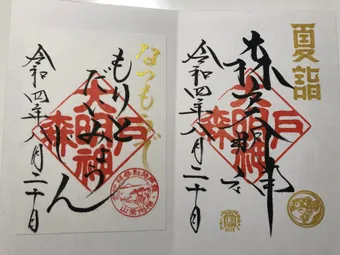 夏詣
森戸
大明神
令和四年八月二十日
なつもうで
もりと
だいみょう
じん
森戸
大明神
令和四年八月二十日